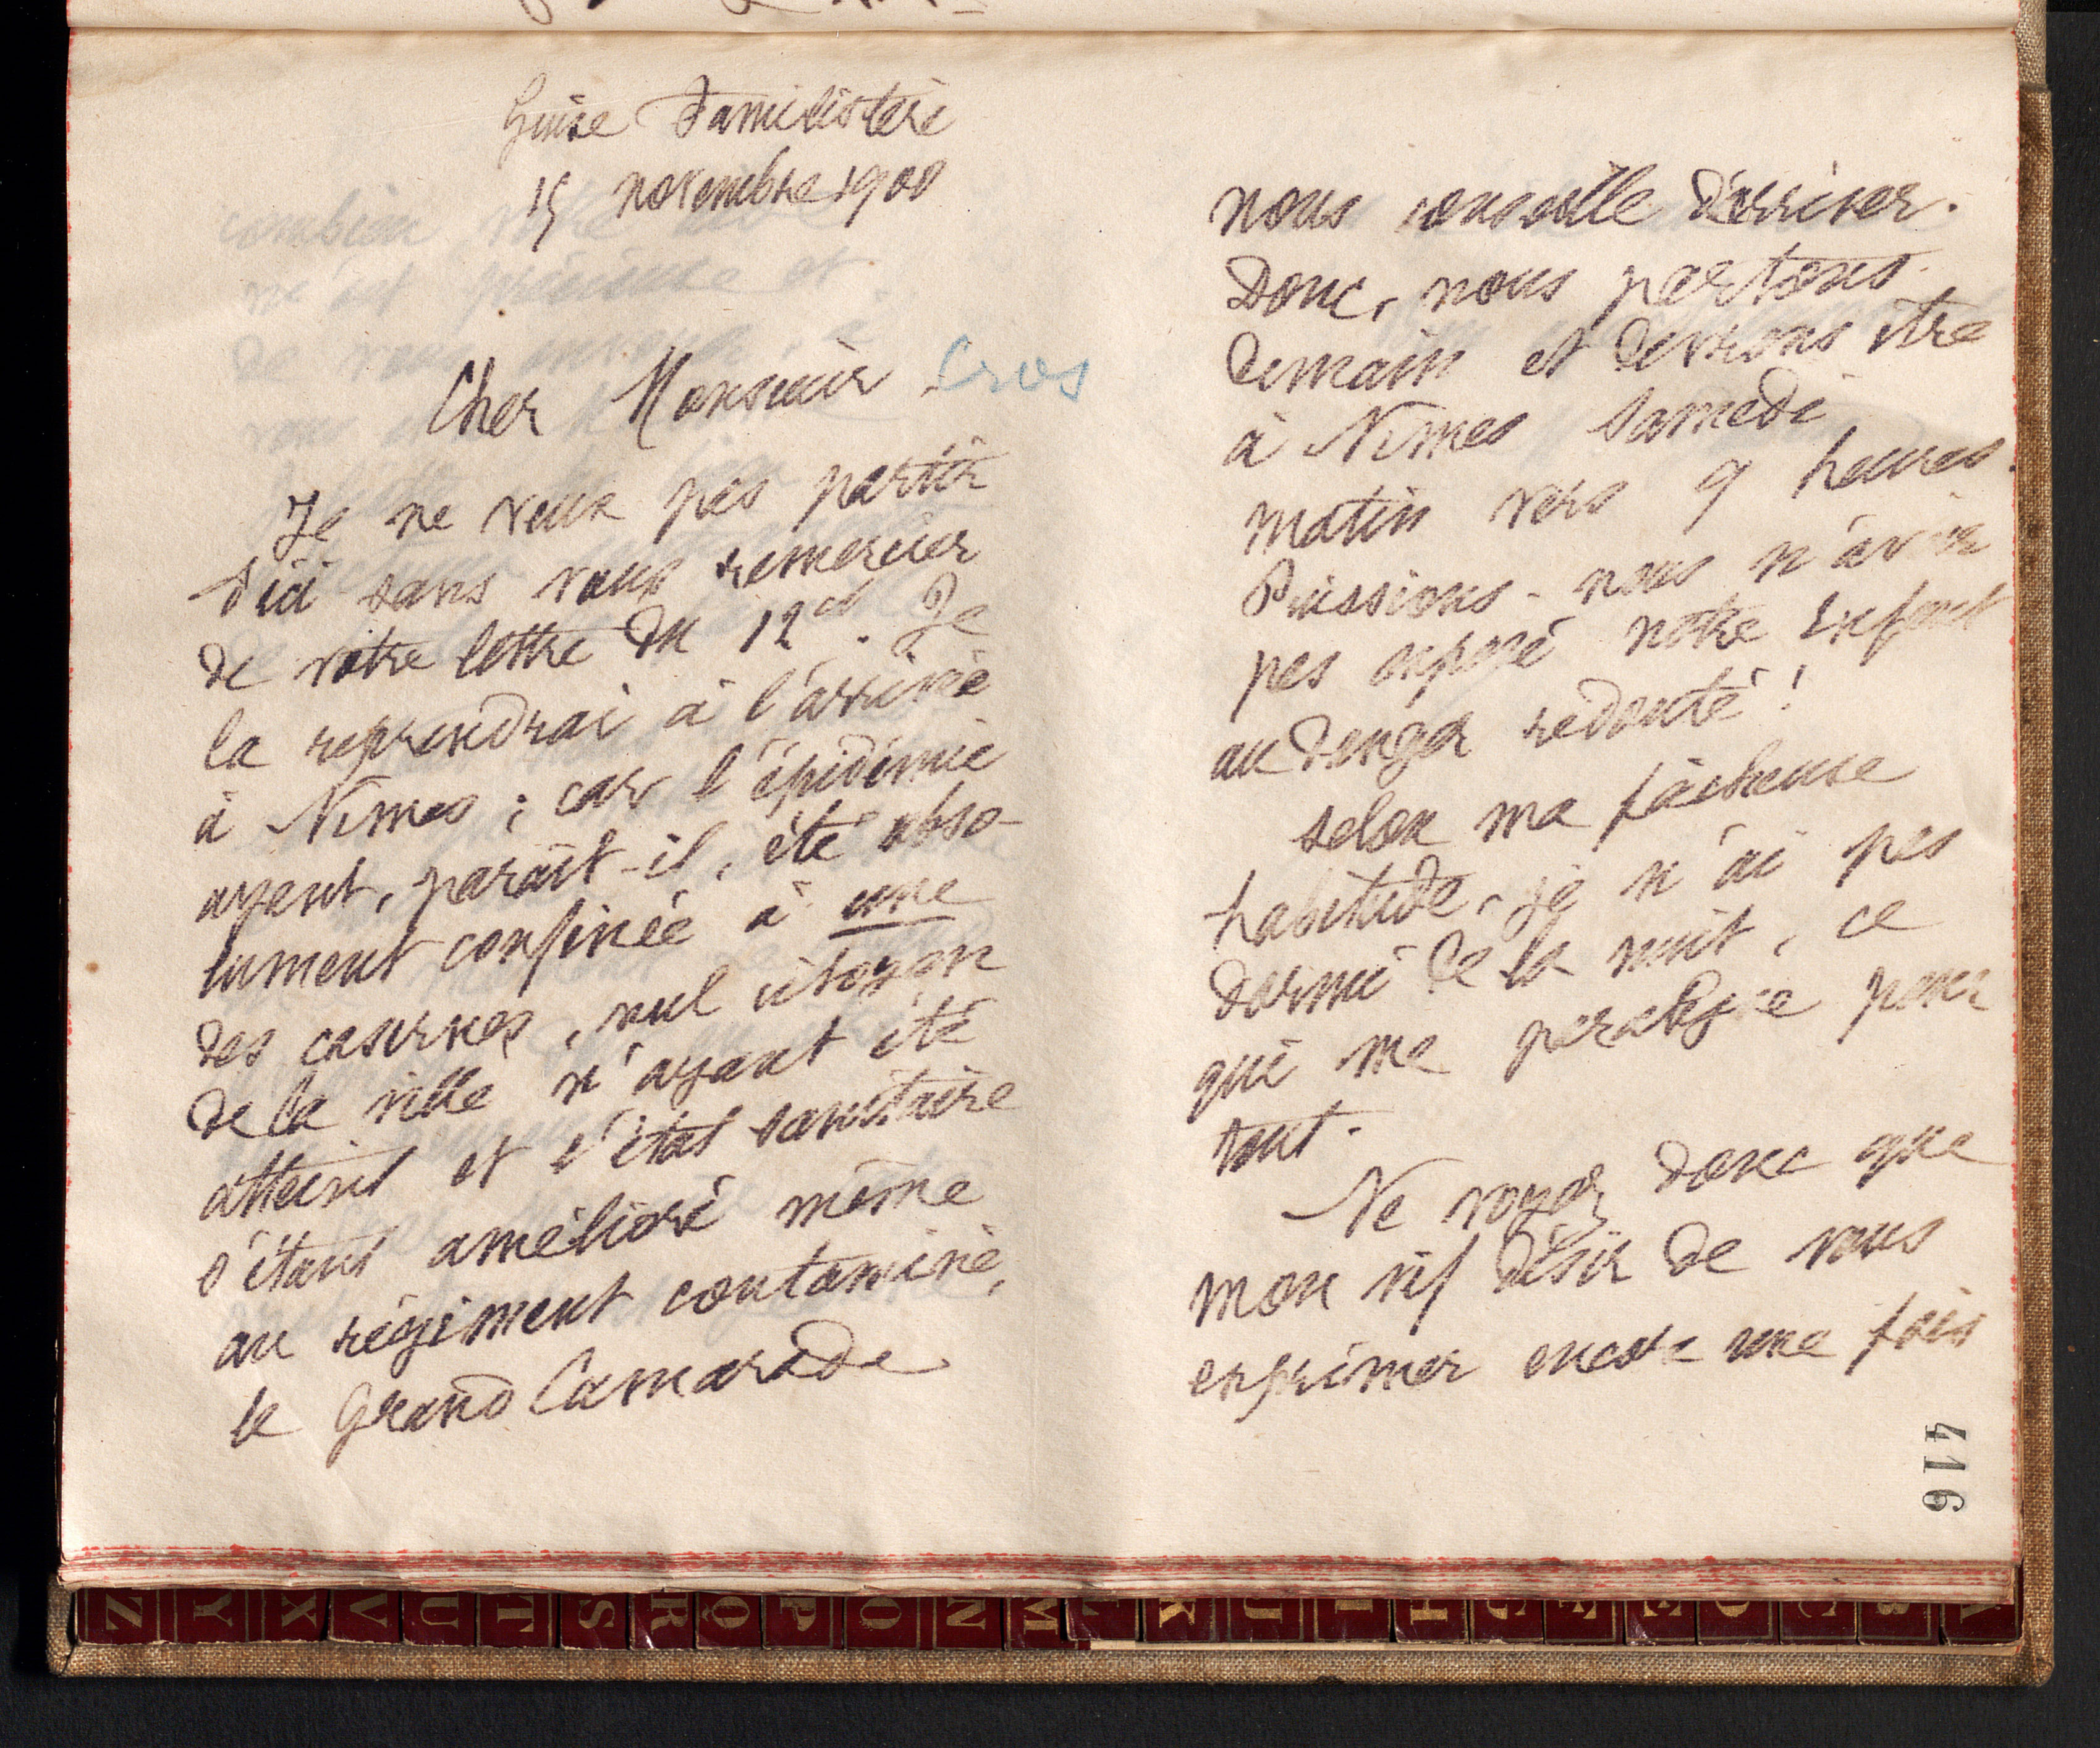 Guise Familistère
15 novembre 1900
Cher Monsieur Cros
Je ne veux pas partir
d'ici sans vous remercier
de votre lettre du 12 ct. Je
la reprendrai à l'arrivée
à Nîmes ; car l'épidémie
ayant, paraît-il, été abso-
lument confinée à une
des casernes, nul citoyen
de la ville n'ayant été
atteint et l'état sanitaire
s'étant amélioré même
au régiment contaminé,
le Grand Camarade
nous conseille d'arriver.
Donc, nous partons
demain et devrons être
à Nîmes Samedi
matin vers 9 heures.
Puissions-nous n'avoir
pas exposé notre Enfant
au danger redouté !
Selon ma fâcheuse
habitude, je n'ai pas
dormi de la nuit, ce
qui me paralyse pour
tout.
Ne voyez donc que
mon vif désir de vous
exprimer encore une fois
416
Z Y X V U T S R Q P O N M L K J I H G F E D C B A